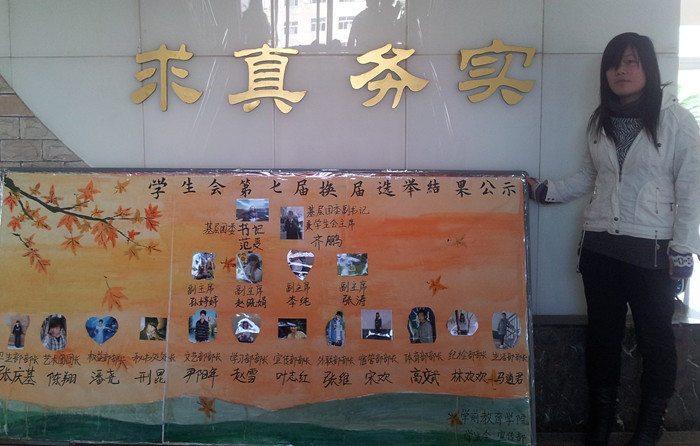 求真务实
学生会第七届换届选举结果公示
基层团委书记
基层团委副书记
兼学生会主席
齐鹏
副主席 副主席 副主席 副主席
孙婷婷 李纯 张涛
艺术团团长 文艺部部长 学习部部长 宣传部部长 外联部部长 宿管部部长 体育部部长 纪检部部长 生活部部长
张庆基 陈翔 潘亮 刑昆 尹阳年 赵雪 叶志红 张维 宋欢 高斌 林欢欢
学前教育学院